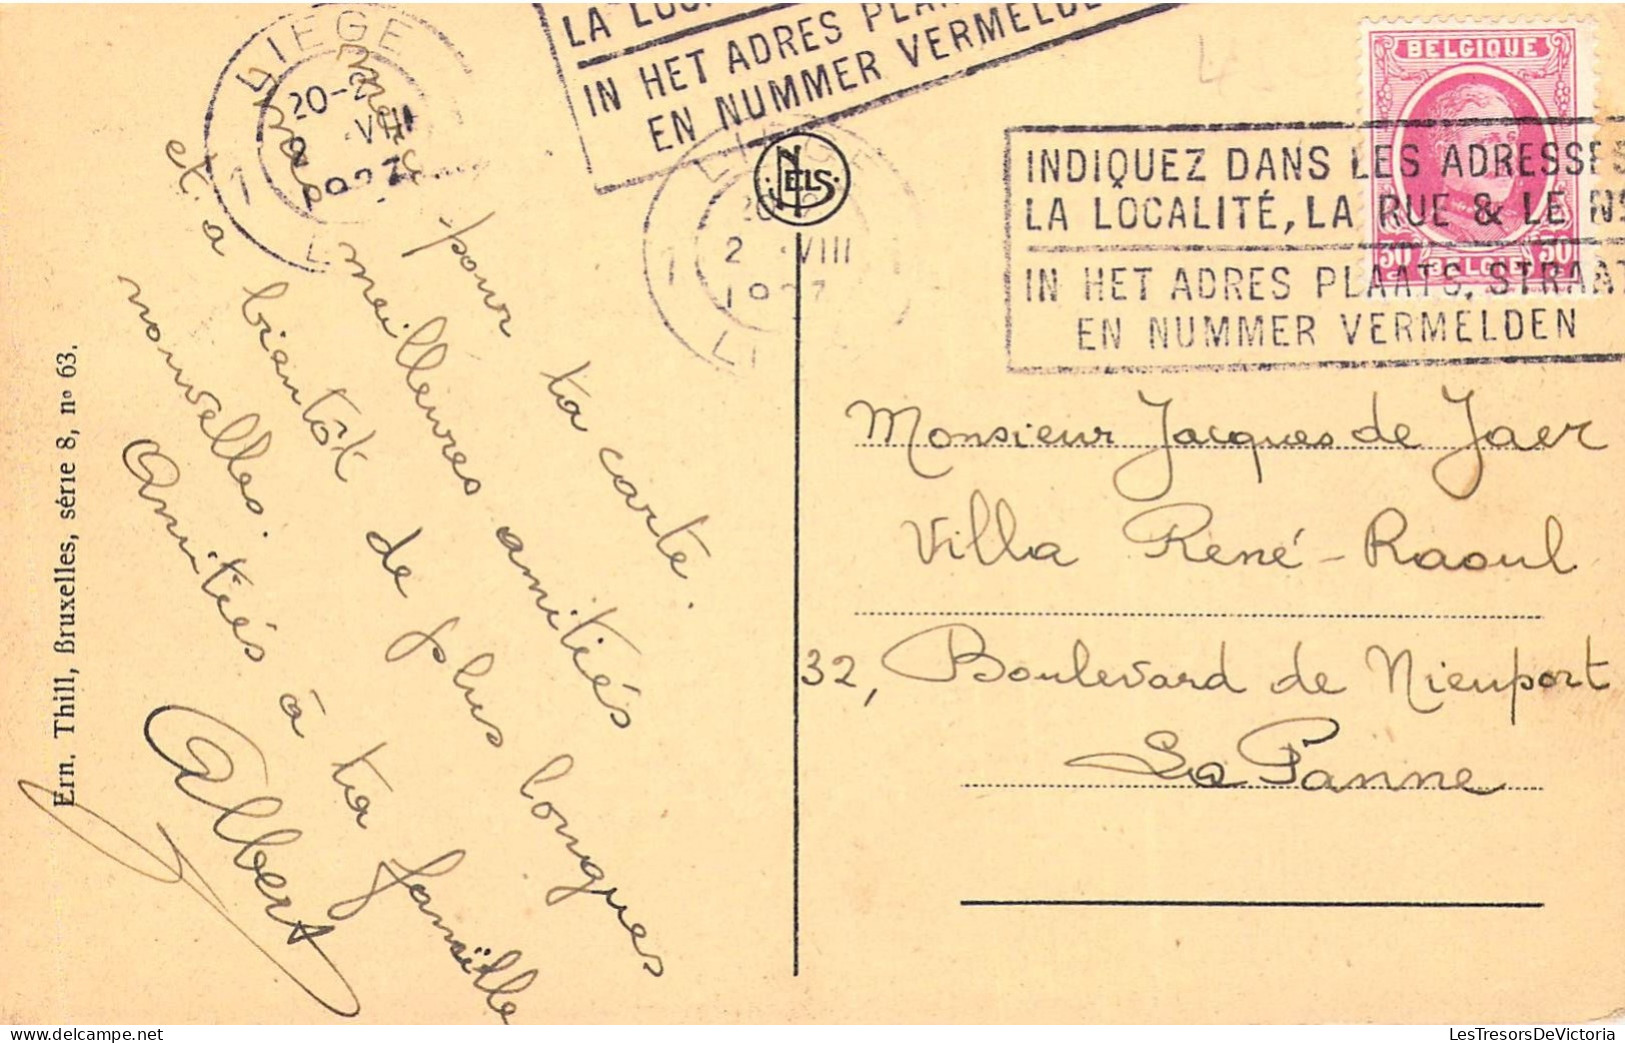 LIEGE
1
20-
VIII
1927
L
LA LOC
IN HET ADRES PLA
EN NUMMER VERMELDE
LIEGE
1
20
2 VIII
1927
LI
NELS
BELGIQUE
50 50
BELGIE
INDIQUEZ DANS LES ADRESSES
LA LOCALITÉ, LA RUE & LE N
IN HET ADRES PLAATS, STRAAT
EN NUMMER VERMELDEN
Merci pour ta carte.
meilleures amitiés
et à bientôt de plus longues
nouvelles.
Amitiés à ta famille
Albert
Monsieur Jacques de Jaer
Villa René-Raoul
32, Boulevard de Nieuport
La Panne
Ern. Thill, Bruxelles, série 8, nº 63.
LesTresorsDeVictoria.com